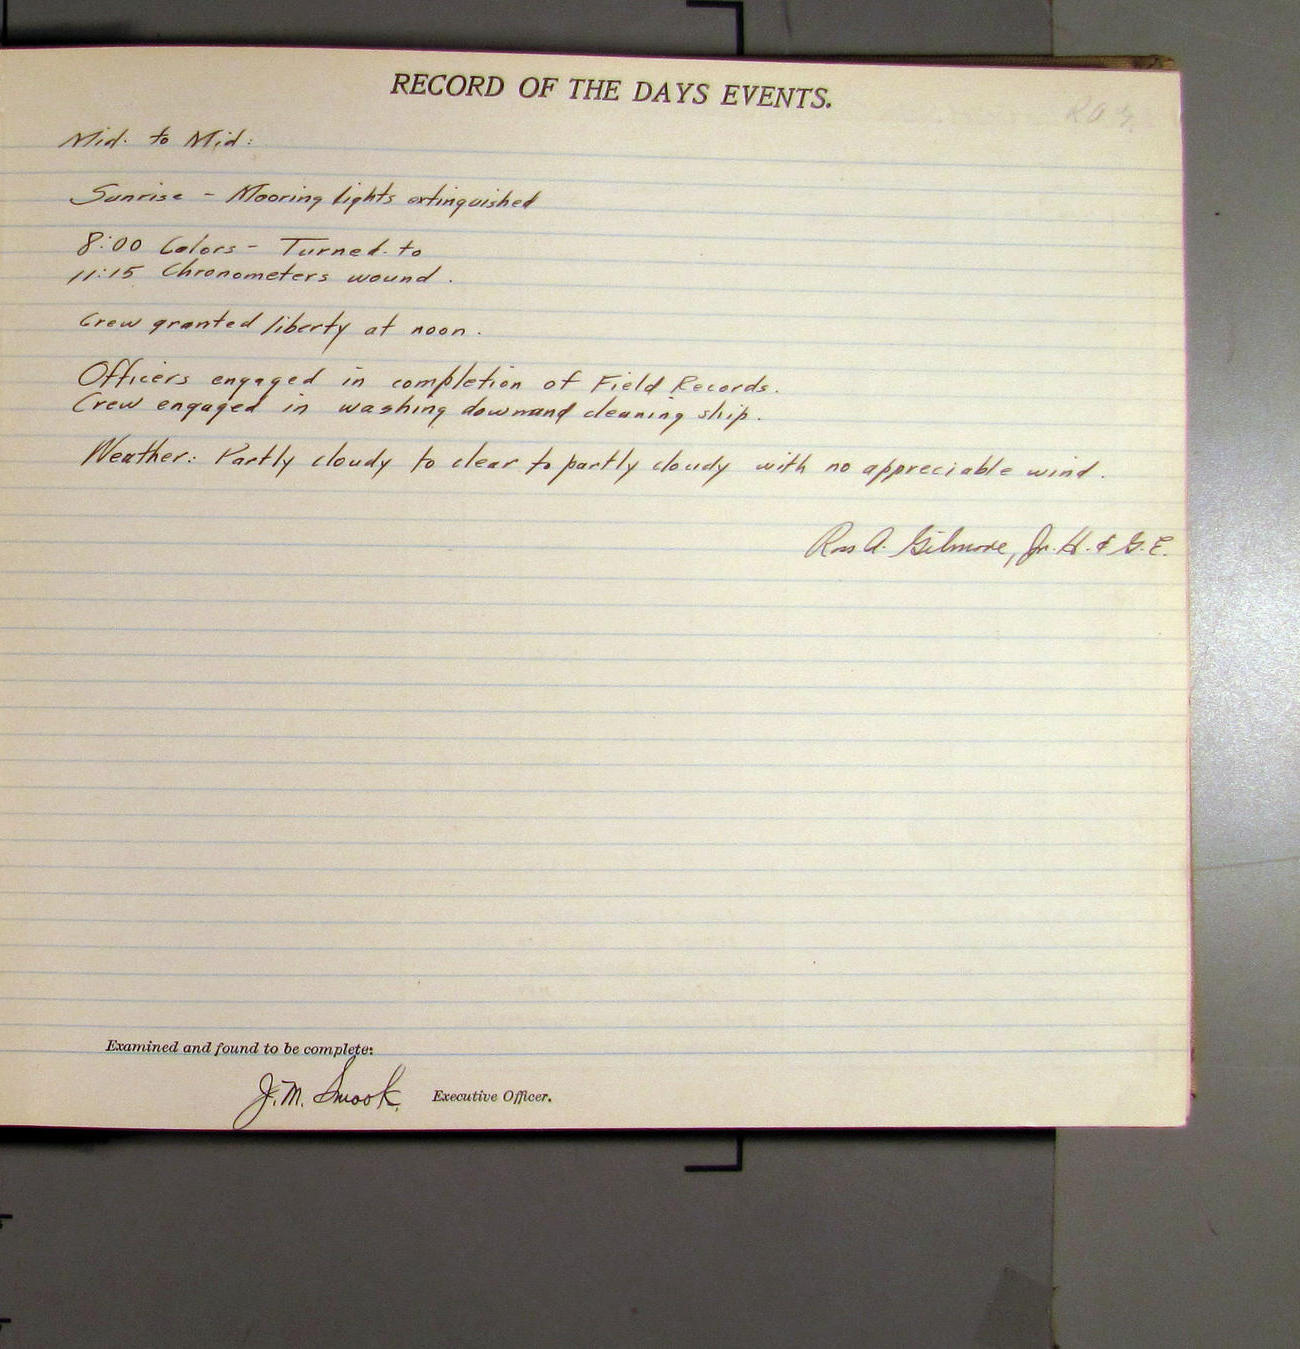 RECORD OF THE DAYS EVENTS.
Mid. to Mid:
Sunrise - Mooring lights extinguished
8:00 Colors - Turned to
11:15 Chronometers wound.
Crew granted liberty at noon.
Officers engaged in completion of Field Records.
Crew engaged in washing down and cleaning ship.
Weather: Partly cloudy to clear to partly cloudy with no appreciable wind.
Ross A. Gilmore, Jr. H. & G. E.
Examined and found to be complete:
J. M. Smook, Executive Officer.